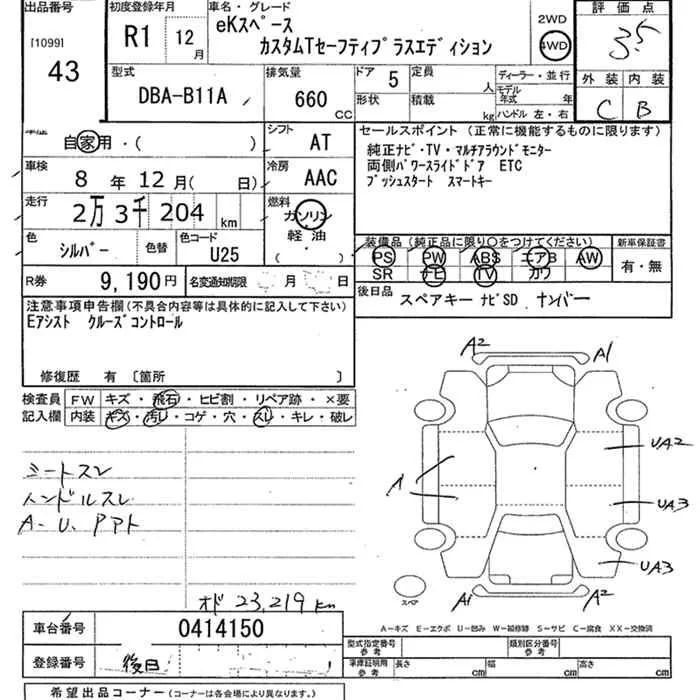 出品番号 初度登録年月 車名・グレード 評価点
[1099] R1 12月 eKスペース 2WD 3.5
43 カスタムTセーフティプラスエディション 4WD
型式 排気量 ドア 5 定員 人 ディーラー・並行 外装 内装
DBA-B11A 660 CC 形状 積載 kg モデル年式 年 C B
ハンドル 左・右
自家用・( ) シフト AT セールスポイント (正常に機能するものに限ります)
車検 冷房 純正ナビ・TV・マルチアラウンドモニター
8 年 12 月( 日) AAC 両側パワースライドドア ETC
走行 燃料 プッシュスタート スマートキー
2万 3千 204 km ガソリン
軽油
色 色替 色コード ( ) 装備品 (純正品に限り○をつけてください) 新車保証書
シルバー U25 PS PW ABS エアB AW 有・無
R券 9,190円 名変通知期限 月 日 SR ナビ TV カワ
注意事項申告欄(不具合内容等は具体的に記入して下さい) 後日品 スペアキー ナビSD ナンバー
Eアシスト クルーズコントロール
修復歴 有 〔箇所 〕
検査員 FW キズ・飛石・ヒビ割・リペア跡・×要
記入欄 内装 キズ・汚レ・コゲ・穴・スレ・キレ・破レ
A2 A1
シートスレ UA2
ハンドルスレ A UA3
A・U、Pアト UA3
A1 A2
スペア
オド 23,219 km
A-キズ E-エクボ U-凹み W-補修跡 S-サビ C-腐食 XX-交換済
車台番号 0414150
型式指定番号 参考 類別区分番号 参考
登録番号 後日 車庫証明用 参考 長さ cm 幅 cm 高さ cm
希望出品コーナー (コーナーは各会場により異なります。)